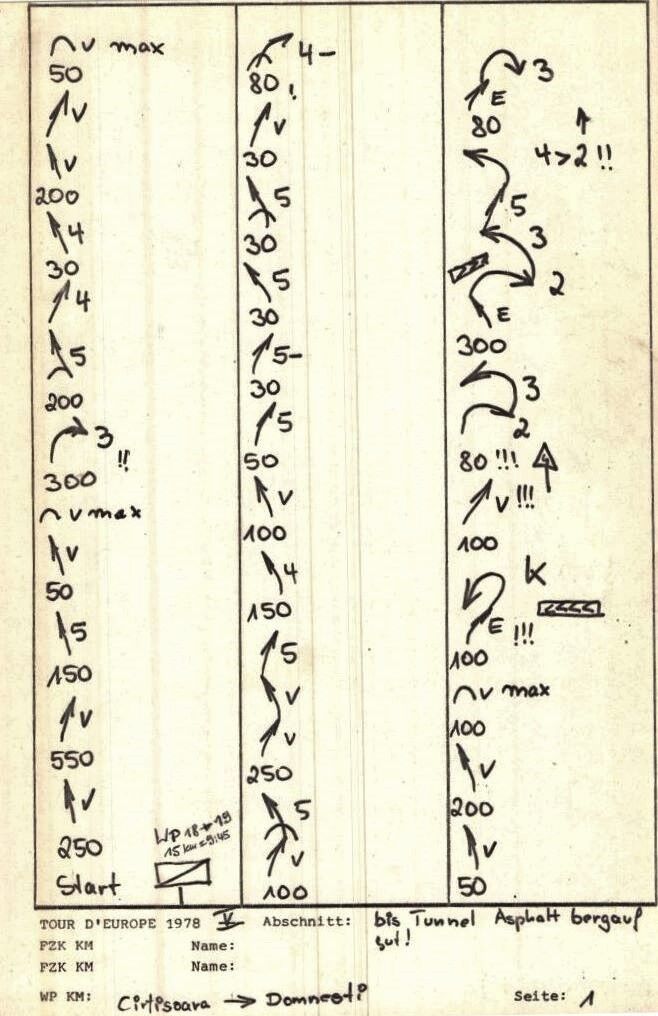 v max
50
v
v
200
4
30
4
5
200
3
!!
300
v max
v
50
5
150
v
550
v
250
Start
WP 18 → 19
4-
80 !
v
30
5
30
5
30
5-
30
5
50
v
100
4
150
5
v
v
250
5
v
100
3
E
80
4>2 !!
5
3
2
E
300
3
2
80 !!!
v !!!
100
K
E !!!
100
v max
100
v
200
v
50
TOUR D'EUROPE 1978 V Abschnitt: bis Tunnel Asphalt bergauf
gut!
FZK KM Name:
FZK KM Name:
WP KM: Cirtisoara → Domnesti Seite: 1